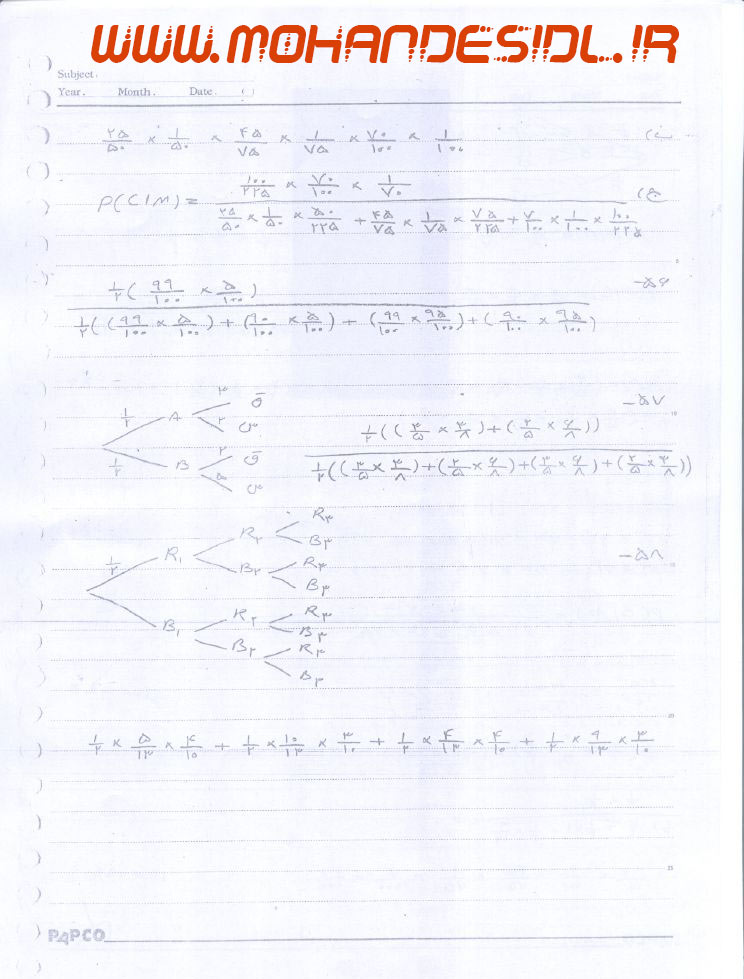 WWW.MOHANDESIDL.IR
Subject.
Year. Month. Date. ( )
۲۵/۵۰ × ۱/۵۰ × ۴۵/۷۵ × ۱/۷۵ × ۷۰/۱۰۰ × ۱/۱۰۰ (ب
P(C|M) = (۱۰۰/۲۲۵ × ۷۰/۱۰۰ × ۱/۷۰) / (۲۵/۵۰ × ۱/۵۰ × ۵۰/۲۲۵ + ۴۵/۷۵ × ۱/۷۵ × ۷۵/۲۲۵ + ۷/۱۰۰ × ۱/۱۰۰ × ۱۰۰/۲۲۵) (ج
۵۶-
۱/۲(۹۹/۱۰۰ × ۵/۱۰۰) / ۱/۲((۹۹/۱۰۰ × ۵/۱۰۰) + (۹۰/۱۰۰ × ۵/۱۰۰) + (۹۹/۱۰۰ × ۹۵/۱۰۰) + (۹۰/۱۰۰ × ۹۵/۱۰۰))
۵۷-
۱/۲ A ۳ ۲ س
۱/۲ B ۳ ۵ س
۱/۲((۳/۵ × ۳/۸) + (۲/۵ × ۶/۸)) / ۱/۲((۳/۵ × ۳/۸) + (۲/۵ × ۶/۸) + (۳/۵ × ۶/۸) + (۲/۵ × ۳/۸))
10
۵۸-
۱/۲ R۱ R۲ R۳
B۳
B۲ R۳
B۳
15
B۱ R۲ R۳
B۳
B۲ R۳
B۳
20
۱/۲ × ۵/۱۳ × ۴/۱۰ + ۱/۲ × ۱۰/۱۳ × ۳/۱۰ + ۱/۲ × ۴/۱۳ × ۴/۱۰ + ۱/۲ × ۹/۱۳ × ۳/۱۰
25
PAPCO